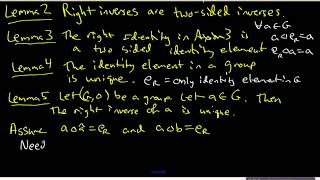 Lemma2 Right inverses are two-sided inverses.
∀a∈G
Lemma3 The right identity in Axiom3 is a∘e_R=a
a two sided identity element e_R∘a=a
Lemma4 The identity element in a group
is unique. e_R = only identity element in G
Lemma5 Let (G,∘) be a group. Let a∈G. Then
The right inverse of a is unique.
Assume a∘â=e_R and a∘b=e_R
Need